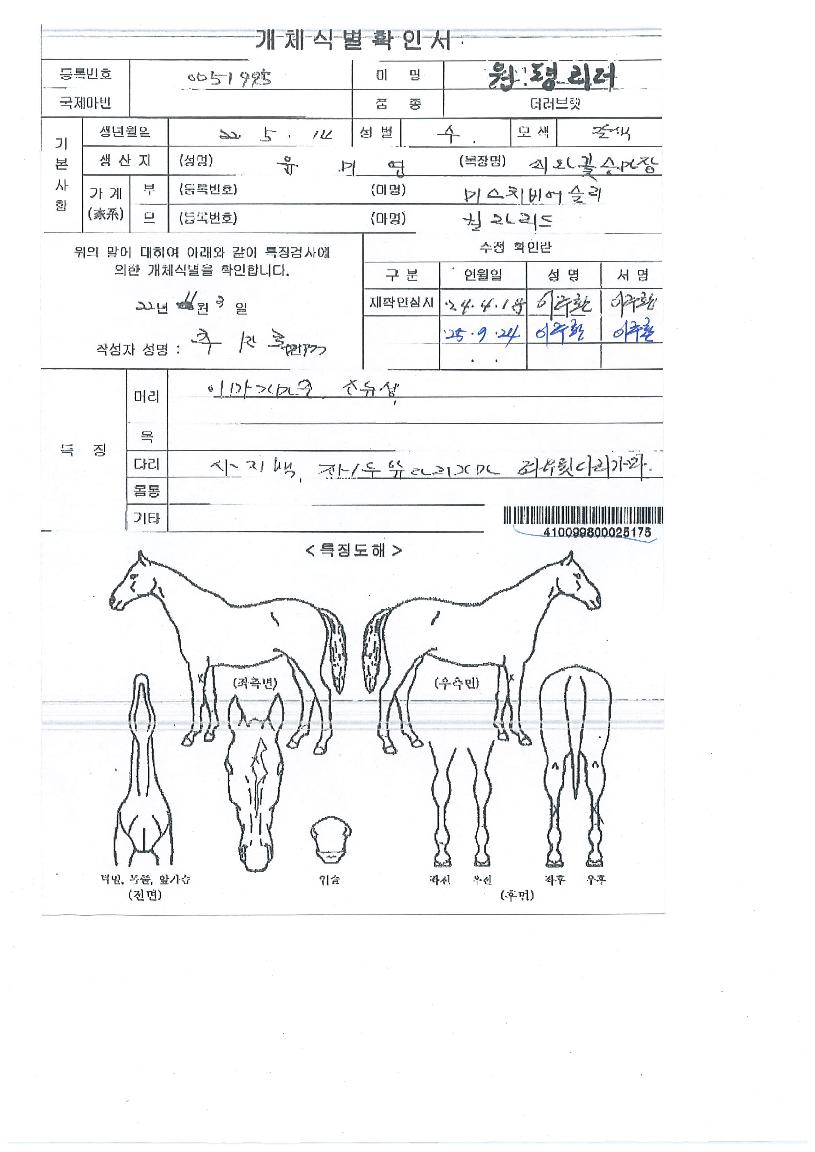 개체식별확인서
등록번호 0051995 마 명 원평리더
국제마번 품 종 더러브렛
기본사항
생년월일 22. 5. 14 성별 수. 모색 갈색
생산지 (성명) 윤 (목장명)
가계 (家系) 부 (등록번호) (마명) 미스치비어슬리
모 (등록번호) (마명)
위의 말에 대하여 아래와 같이 특징검사에
의한 개체식별을 확인합니다.
22년 월 3 일
작성자 성명 :
수정 확인란
구 분 연월일 성 명 서 명
재작인실시 24. 4. 18 이주환 이주환
25. 9. 24 이주환 이주환
특 징
머리
목
다리 사지백,
몸통
기타
410099800025175
<특징도해>
(좌측면) (우측면)
턱밑, 목밑, 앞가슴
(전면)
위술
좌전 우전 좌후 우후
(후면)